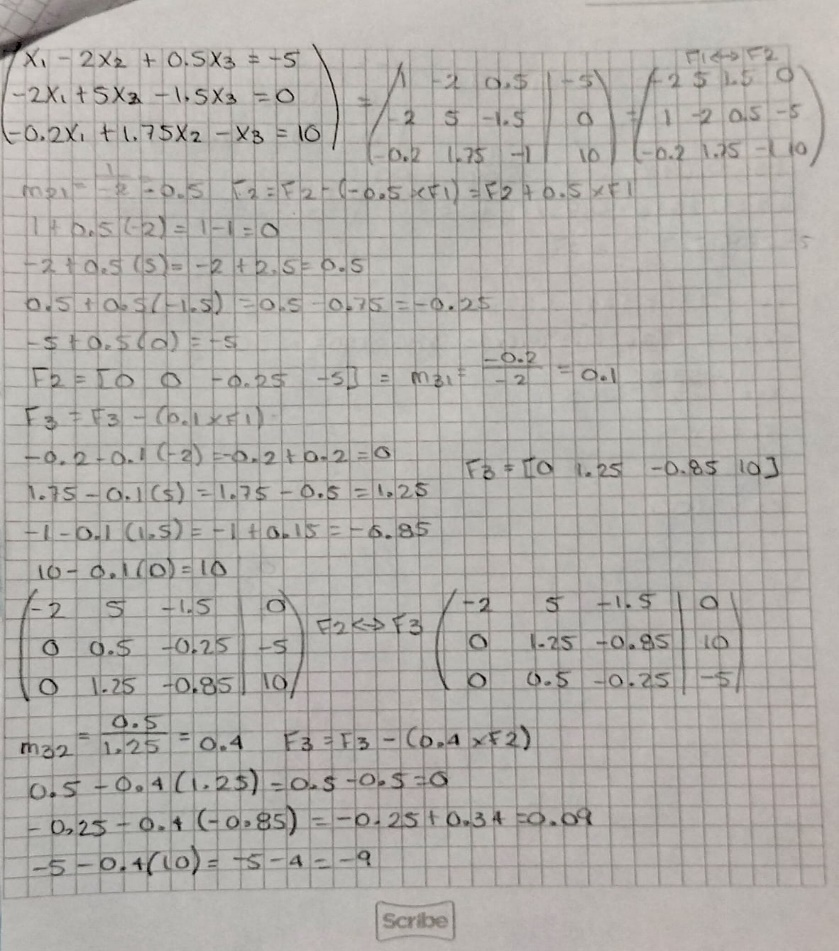 x₁ - 2x₂ + 0.5x₃ = -5
-2x₁ + 5x₂ - 1.5x₃ = 0
-0.2x₁ + 1.75x₂ - x₃ = 10
= 1 -2 0.5 | -5
-2 5 -1.5 | 0
-0.2 1.75 -1 | 10
F1 <-> F2
= -2 5 1.5 0
1 -2 0.5 -5
-0.2 1.75 -1 10
m21 = 1/-2 = 0.5 F2 = F2 - (-0.5 x F1) = F2 + 0.5 x F1
1 + 0.5(-2) = 1 - 1 = 0
-2 + 0.5(5) = -2 + 2.5 = 0.5
0.5 + 0.5(-1.5) = 0.5 - 0.75 = -0.25
-5 + 0.5(0) = -5
F2 = [0 0 -0.25 -5] = m31 = -0.2/-2 = 0.1
F3 = F3 - (0.1 x F1)
-0.2 - 0.1(-2) = -0.2 + 0.2 = 0
F3 = [0 1.25 -0.85 10]
1.75 - 0.1(5) = 1.75 - 0.5 = 1.25
-1 - 0.1(1.5) = -1 + 0.15 = -0.85
10 - 0.1(0) = 10
-2 5 -1.5 | 0
0 0.5 -0.25 | -5
0 1.25 -0.85 | 10
F2 <-> F3
-2 5 -1.5 | 0
0 1.25 -0.85 | 10
0 0.5 -0.25 | -5
m32 = 0.5/1.25 = 0.4 F3 = F3 - (0.4 x F2)
0.5 - 0.4(1.25) = 0.5 - 0.5 = 0
-0.25 - 0.4(-0.85) = -0.25 + 0.34 = 0.09
-5 - 0.4(10) = -5 - 4 = -9
Scribe